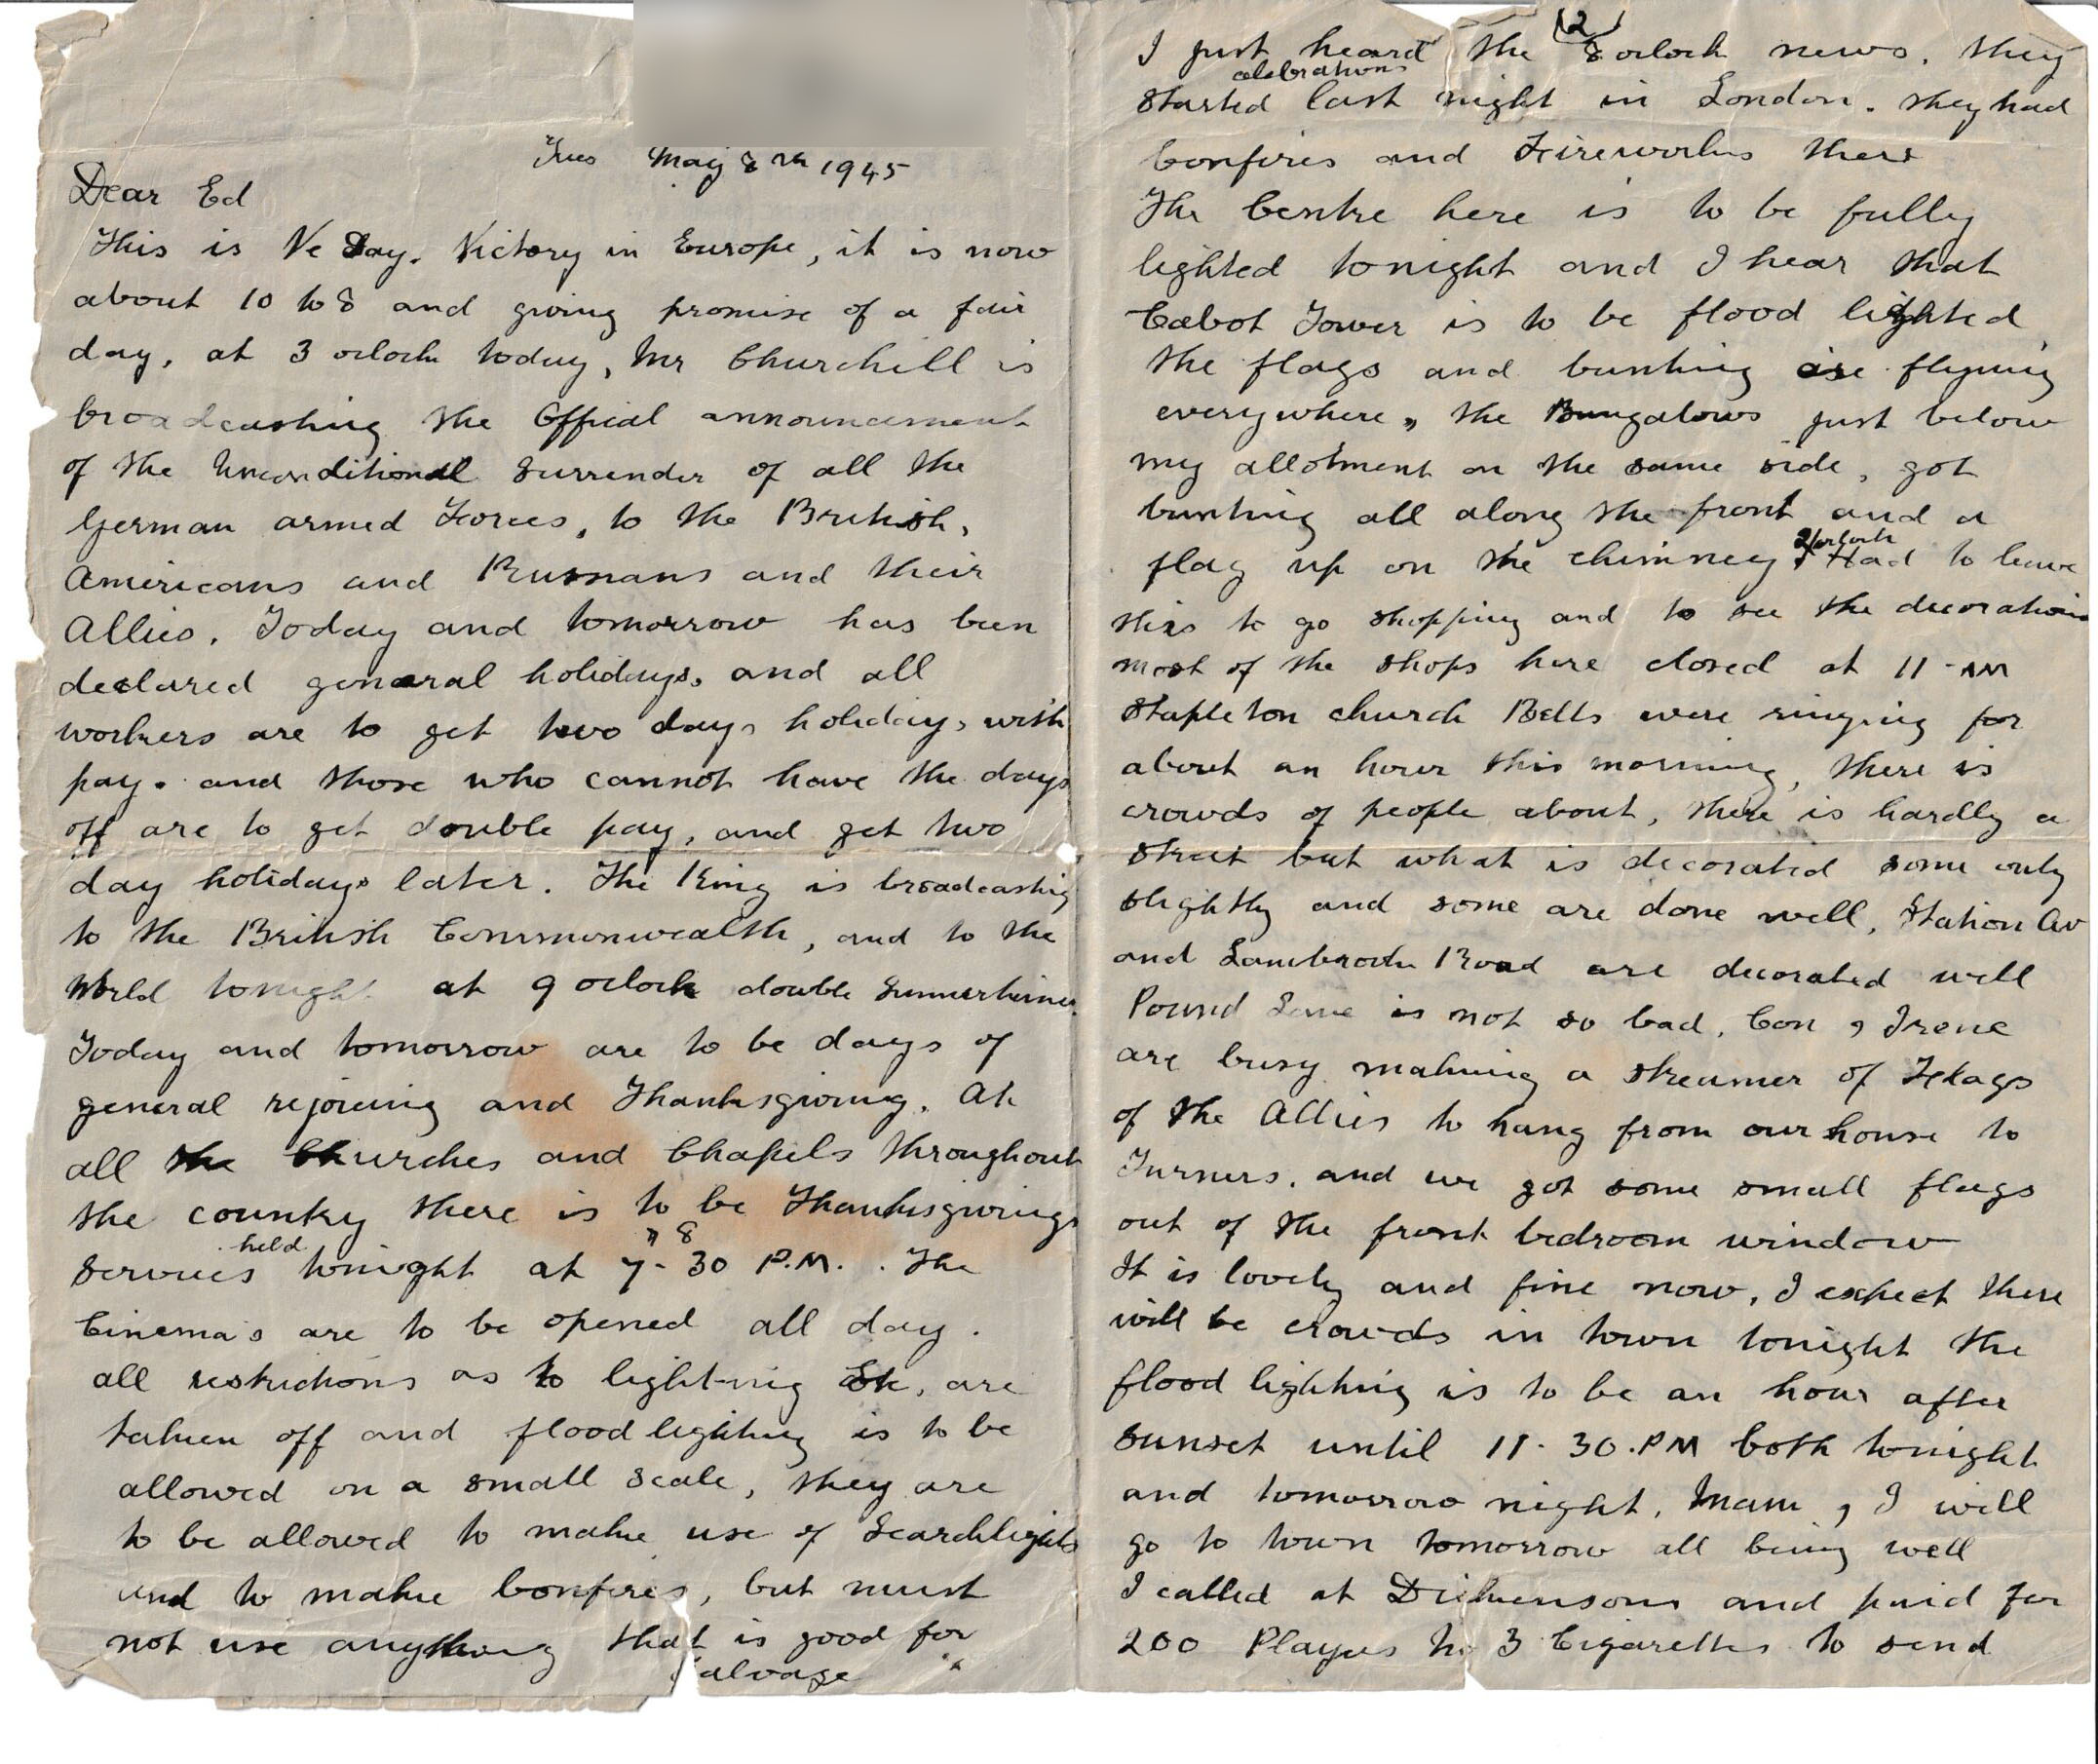 Tues May 8th 1945
Dear Ed
This is Ve Day. Victory in Europe, it is now
about 10 to 8 and giving promise of a fair
day, at 3 oclock today, Mr Churchill is
broadcasting the Offical announcement
of the Unconditional Surrender of all the
German armed Forces, to the British,
Americans and Russians and their
Allies. Today and tomorrow has been
declared general holidays, and all
workers are to get two days holidays with
pay. and those who cannot have the days
off are to get double pay, and get two
day holidays later. The King is broadcasting
to the British Commonwealth, and to the
World tonight at 9 oclock double Summertime.
Today and tomorrow are to be days of
general rejoicing and Thanksgiving. At
all the Churches and Chapels throughout
the country there is to be Thanksgivings
" 8
Services held tonight at 7-30 P.M. . The
Cinema's are to be opened all day.
all restrictions as to lighting etc, are
taken off and flood lighting is to be
allowed on a small scale, they are
to be allowed to make use of Searchlights
and to make bonfires, but must
not use anything that is good for
salvage
(2)
I just heard the 8 oclock news. they
started celebrations last night in London. they had
bonfires and Fireworks there
The Centre here is to be fully
lighted tonight and I hear that
Cabot Tower is to be flood lighted
the flags and bunting are flying
everywhere, the Bungalows just below
my allotment on the same side, got
bunting all along the front and a
flag up on the chimney. 2 oclock Had to leave
this to go shopping and to see the decorations
most of the shops here closed at 11-AM
Stapleton church Bells were ringing for
about an hour this morning, there is
crowds of people about, there is hardly a
street but what is decorated some only
slightly and some are done well, Station Av
and Lambrook Road are decorated well
Pound Lane is not so bad, Con , Irene
are busy making a streamer of Flags
of the Allies to hang from our house to
Turners. and we got some small flags
out of the front bedroom window
It is lovely and fine now, I expect there
will be crowds in town tonight the
flood lighting is to be an hour after
sunset until 11.30.PM both tonight
and tomorrow night, Mam , I will
go to town tomorrow all being well
I called at Dickensons and paid for
200 Players No 3 Cigarettes to send